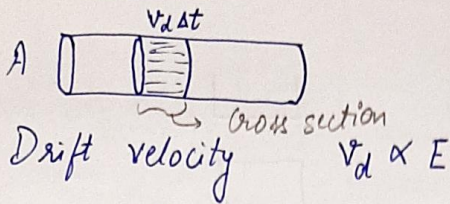 v_d Δt
A
Cross section
Drift velocity v_d ∝ E